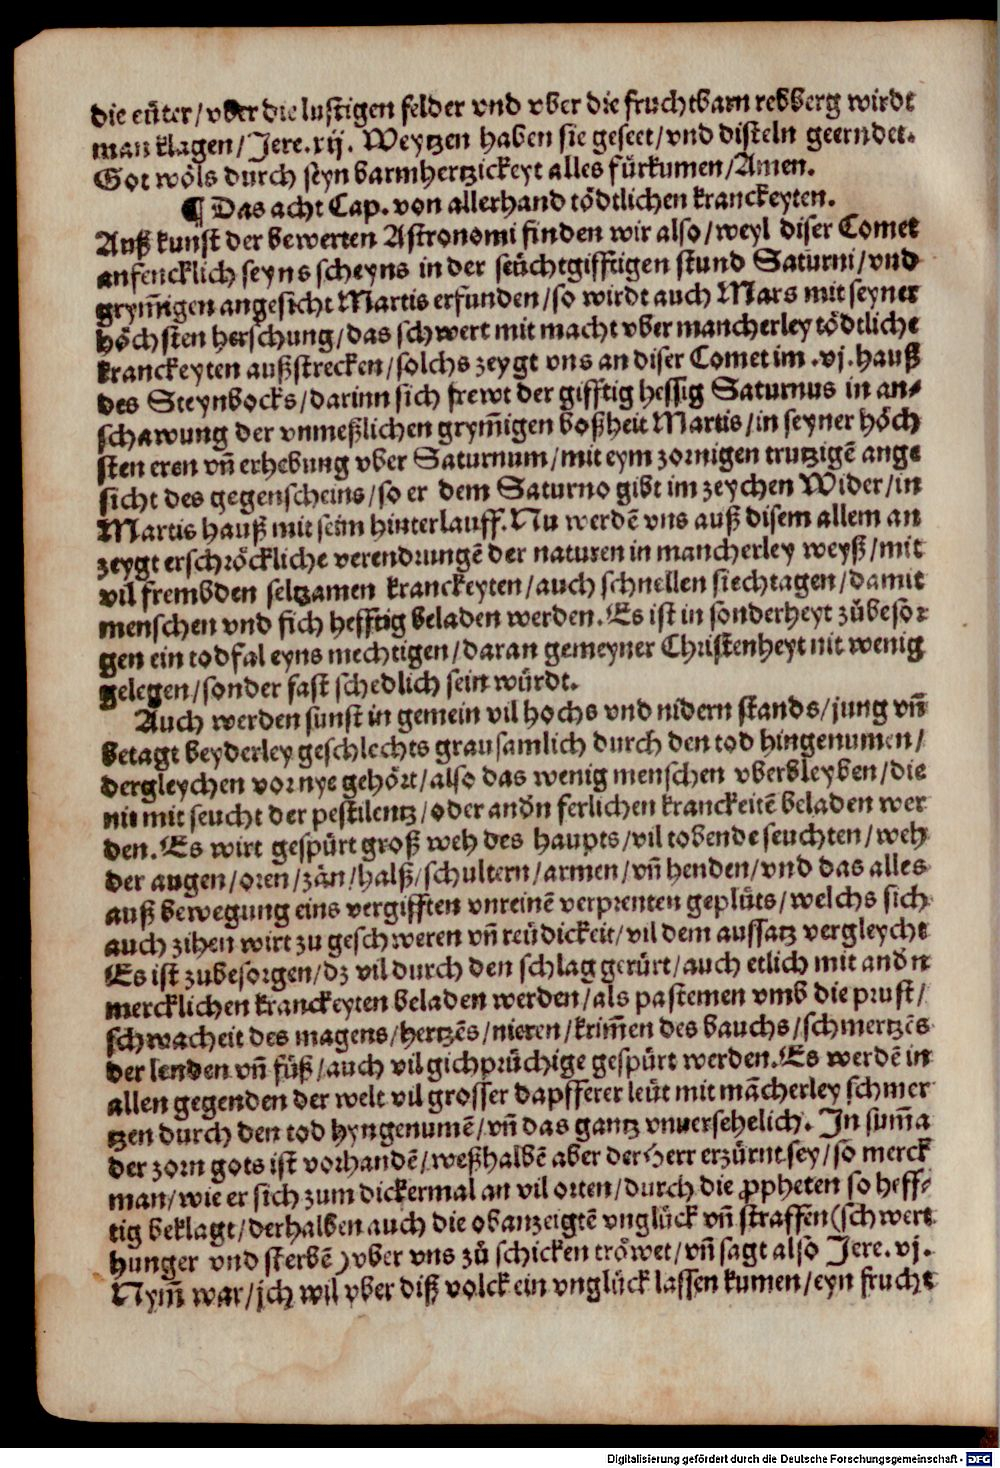 die eüter/vber die lustigen felder vnd vber die fruchtbarn rebberg wirdt
man klagen/Jere.xij. Weytzen haben sie geseet/vnd disteln geerndet.
Got wöls durch seyn barmhertzickeyt alles fürkumen/Amen.
¶ Das acht Cap. von allerhand tödtlichen kranckeyten.
Auß kunst der bewerten Astronomi finden wir also/weyl diser Comet
anfencklich seyns scheyns in der seüchtgifftigen stund Saturni/vnd
grym̄igen angesicht Martis erfunden/so wirdt auch Mars mit seyner
höchsten herschung/das schwert mit macht vber mancherley tödtliche
kranckeyten außstrecken/solchs zeygt vns an diser Comet im .vj. hauß
des Steynbocks/darinn sich frewt der gifftig hessig Saturnus in an⸗
schawung der vnmeßlichen grym̄igen boßheit Martis/in seyner höch
sten eren vn̄ erhebung vber Saturnum/mit eym zornigen trutzigē ange
sicht des gegenscheins/so er dem Saturno gibt im zeychen Wider/in
Martis hauß mit seim hinterlauff. Nu werdē vns auß disem allem an
zeygt erschröckliche verendrungē der naturen in mancherley weyß/mit
vil frembden seltzamen kranckeyten/auch schnellen siechtagen/damit
menschen vnd sich hefftig beladen werden. Es ist in sonderheyt zůbesor
gen ein todfal eyns mechtigen/daran gemeyner Christenheyt nit wenig
gelegen/sonder fast schedlich sein würdt.
Auch werden sunst in gemein vil hochs vnd nidern stands/jung vn̄
betagt beyderley geschlechts grausamlich durch den tod hingenumen/
dergleychen vor nye gehört/also das wenig menschen vberbleyben/die
nit mit seucht der pestilentz/oder andn ferlichen kranckeitē beladen wer
den. Es wirt gespürt groß weh des haupts/vil tobende seuchten/weh
der augen/oren/zän/halß/schultern/armen/vn̄ henden/vnd das alles
auß bewegung eins vergifften vnreinē verprenten geplüts/welchs sich
auch zihen wirt zu geschweren vn̄ reüdickeit/vil dem aussatz vergleycht
Es ist zubesorgen/dz vil durch den schlag gerürt/auch etlich mit andn
mercklichen kranckeyten beladen werden/als pastemen vmb die prust/
schwacheit des magens/hertzēs/nieren/krim̄en des bauchs/schmertzēs
der lenden vn̄ füß/auch vil gichprüchige gespürt werden. Es werdē in
allen gegenden der welt vil grosser dapfferer leüt mit mācherley schmer
tzen durch den tod hyngenumē/vn̄ das gantz vnuersehelich. In sum̄a
der zorn gots ist vorhandē/weßhalbē aber der Herr erzürnt sey/so merck
man/wie er sich zum dickermal an vil orten/durch die ꝓpheten so heff⸗
tig beklagt/derhalben auch die obanzeigtē vnglück vn̄ straffen(schwert
hunger vnd sterbē)vber vns zů schicken tröwet/vn̄ sagt also Jere.vj.
Nym̄ war/jch wil vber diß volck ein vnglück lassen kumen/eyn frucht
Digitalisierung gefördert durch die Deutsche Forschungsgemeinschaft - DFG